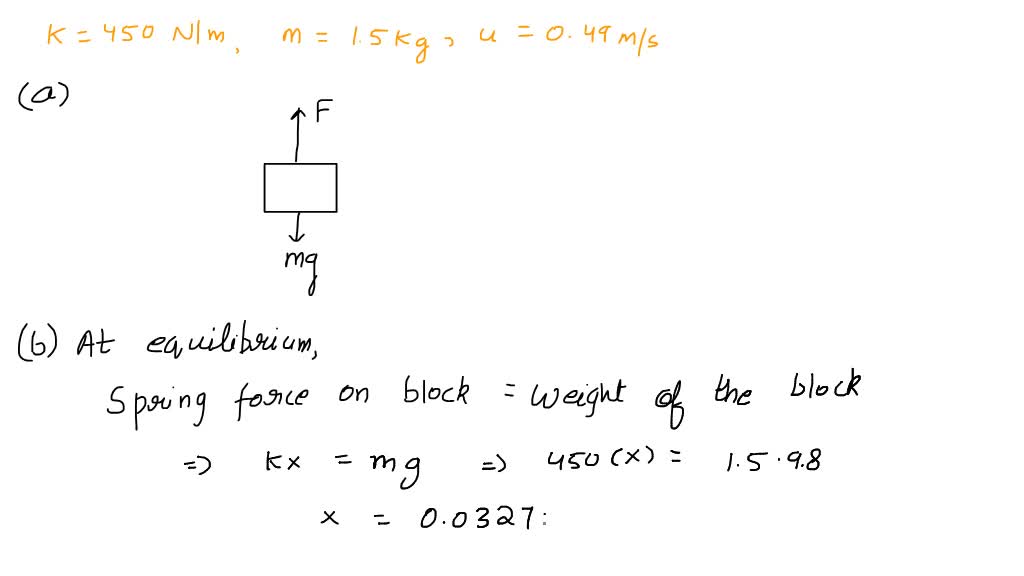 K = 450 N/m, m = 1.5kg, u = 0.49 m/s
(a)
F
mg
(b) At equilibrium,
Spring force on block = weight of the block
=> kx = mg => 450(x) = 1.5 · 9.8
x = 0.0327: